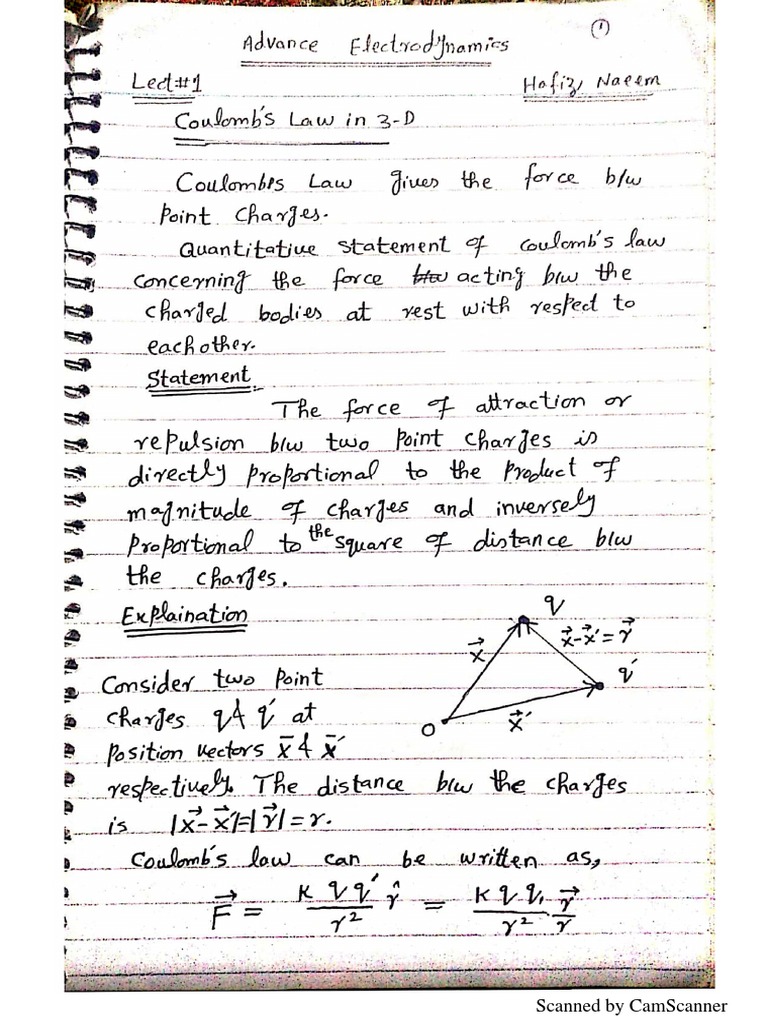 (1)
Advance Electrodynamics
Lect#1 Hafiz, Naeem
Coulomb's Law in 3-D
Coulomb's Law gives the force b/w
Point charges.
Quantitative statement of coulomb's law
concerning the force b/w acting b/w the
charged bodies at rest with respect to
each other.
Statement
The force of attraction or
repulsion b/w two point charges is
directly proportional to the product of
magnitude of charges and inversely
proportional to the square of distance b/w
the charges.
Explaination
q
x⃗
x⃗-x⃗'=r⃗
q'
O
x⃗'
Consider two Point
charges q & q' at
position vectors x̄ & x̄'
respectively. The distance b/w the charges
is |x⃗-x⃗'|=|r⃗|=r.
Coulomb's law can be written as,
F⃗ = K q q'/r² r̂ = K q q,/r² r⃗/r
Scanned by CamScanner